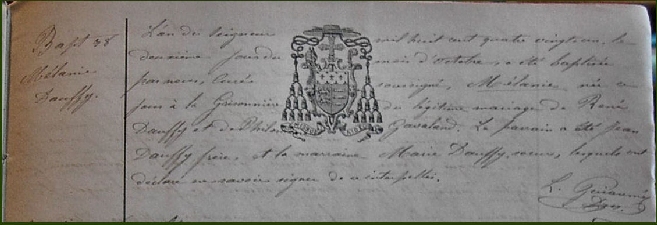 Bapt 38
Mélanie
Dauffy.
L'an du Seigneur mil huit cent quatre vingt un, le
douzième jour du mois d'octobre, a été baptisée
par nous, Curé soussigné, Mélanie née ce
jour à la du légitime mariage de René
Dauffy et de Gavaland. Le parrain a été Jean
Dauffy frère, et la marraine Marie Dauffy, soeur, lesquels ont
déclaré ne savoir signer de ce interpellés.